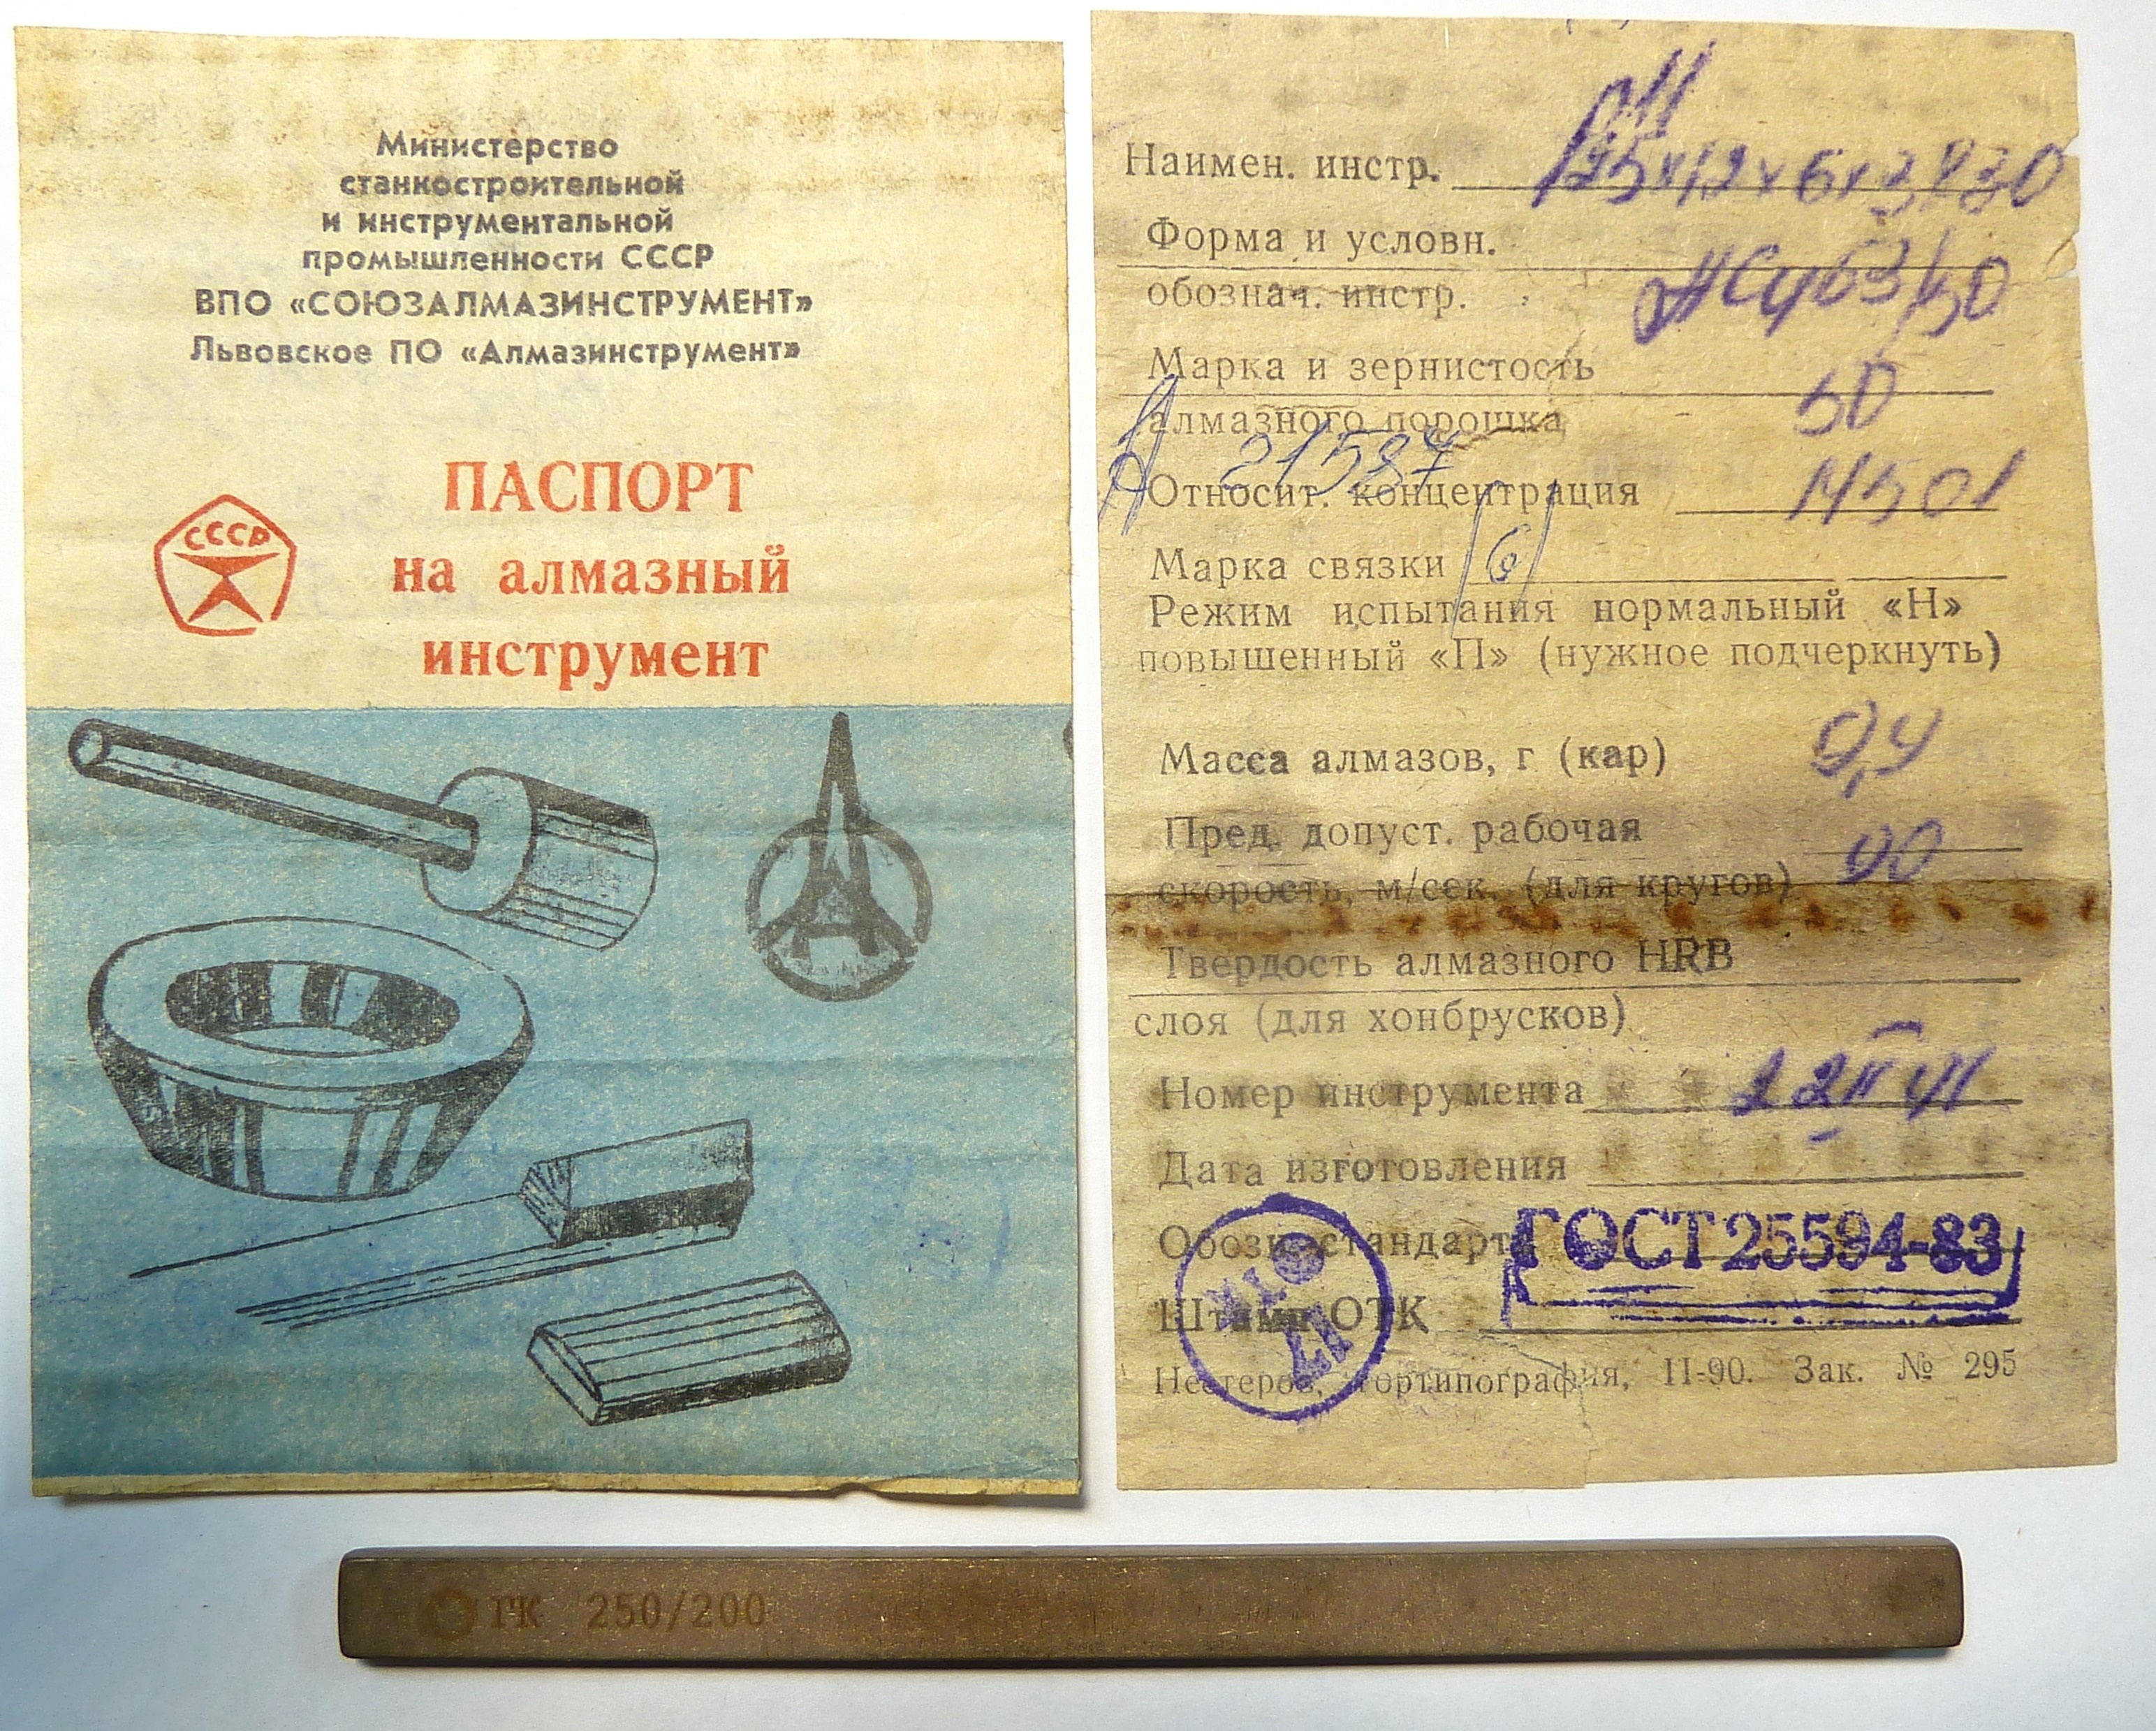 Министерство
станкостроительной
и инструментальной
промышленности СССР
ВПО «СОЮЗАЛМАЗИНСТРУМЕНТ»
Львовское ПО «Алмазинструмент»
СССР
ПАСПОРТ
на алмазный
инструмент
Наимен. инстр. 125х12х6х3х30
Форма и условн.
обознач. инстр. 63/50
Марка и зернистость
алмазного порошка 50
21587
Относит. концентрация
Марка связки (6)
Режим испытания нормальный «Н»
повышенный «П» (нужное подчеркнуть)
Масса алмазов, г (кар)
Пред. допуст. рабочая
скорость, м/сек. (для кругов)
Твердость алмазного HRB
слоя (для хонбрусков)
Номер инструмента
Дата изготовления
Обозн. стандарта ГОСТ 25594-83
Штамп ОТК
17
Нестеров, гортипография, II-90. Зак. № 295
250/200